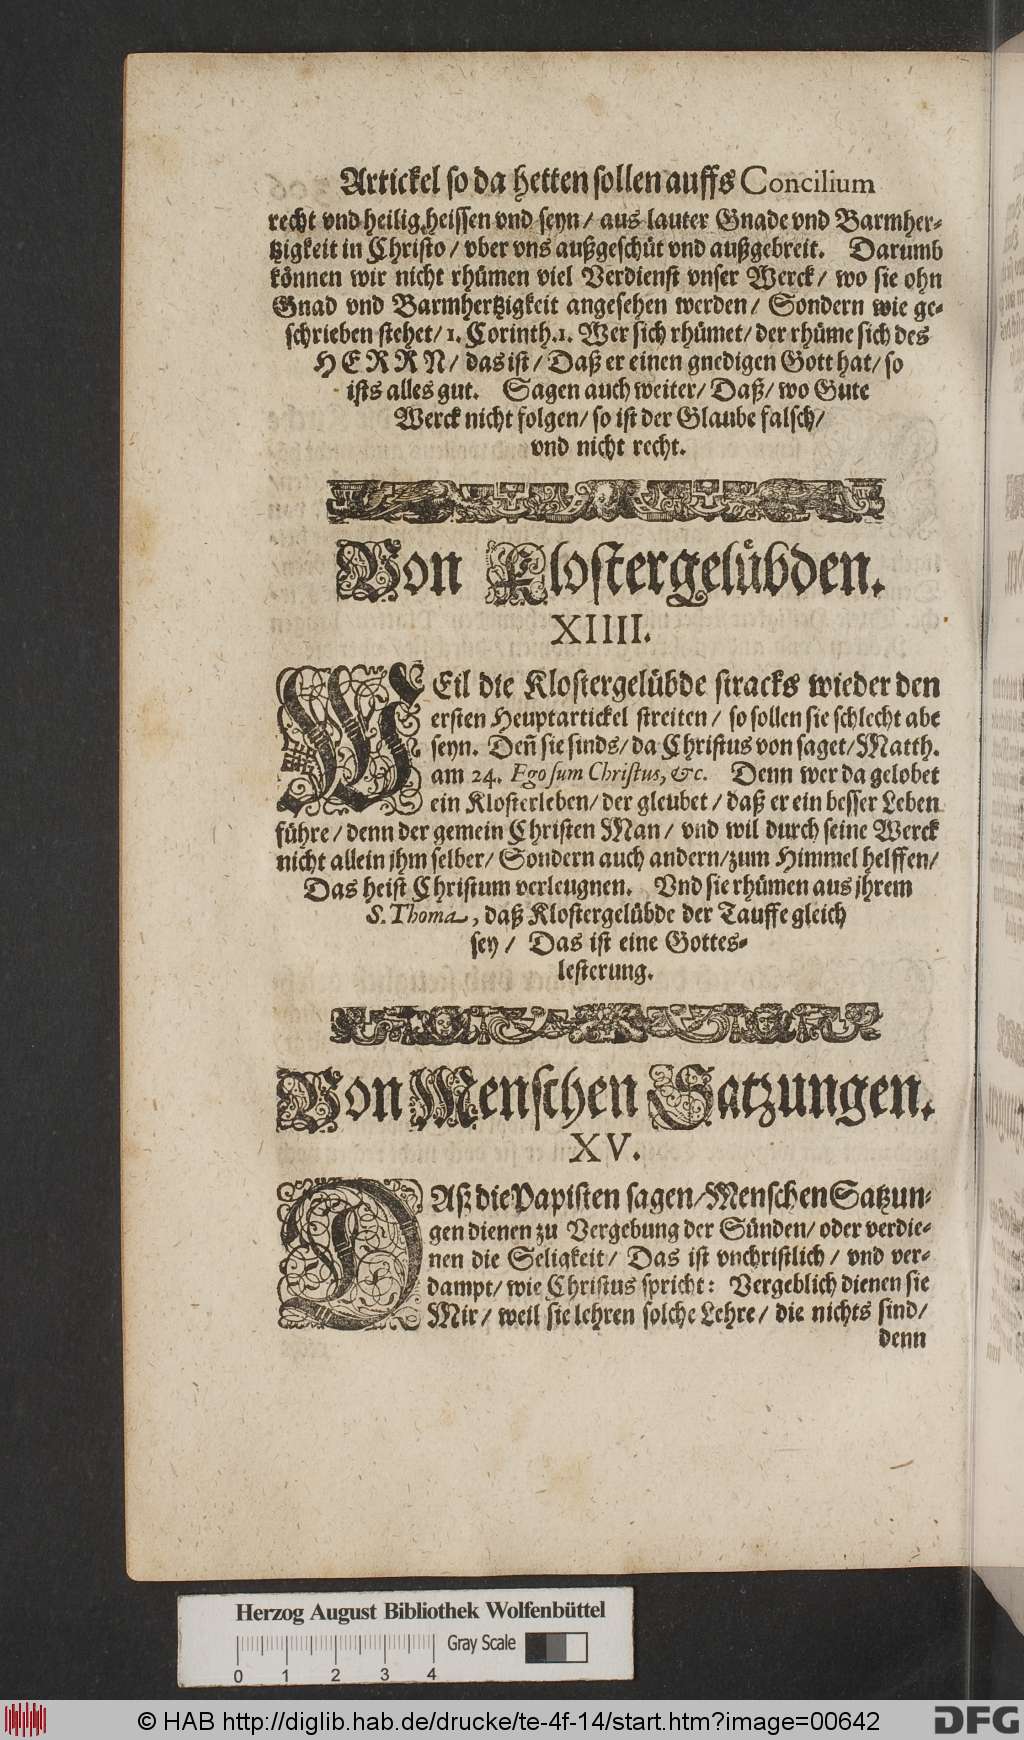 Artickel so da hetten sollen auffs Concilium
recht vnd heilig heissen vnd seyn/ aus lauter Gnade vnd Barmher-
tzigkeit in Christo/ vber vns außgeschüt vnd außgebreit. Darumb
können wir nicht rhümen viel Verdienst vnser Werck/ wo sie ohn
Gnad vnd Barmhertzigkeit angesehen werden/ Sondern wie ge-
schrieben stehet/ 1. Corinth. 1. Wer sich rhümet/ der rhüme sich des
HERRN/ das ist/ Daß er einen gnedigen Gott hat/ so
ists alles gut. Sagen auch weiter/ Daß/ wo Gute
Werck nicht folgen/ so ist der Glaube falsch/
vnd nicht recht.
Von Klostergelübden.
XIIII.
WEil die Klostergelübde stracks wieder den
ersten Heuptartickel streiten/ so sollen sie schlecht abe
seyn. Deñ sie sinds/ da Christus von saget/ Matth.
am 24. Ego sum Christus, &c. Denn wer da gelobet
ein Klosterleben/ der gleubet/ daß er ein besser Leben
führe/ denn der gemein Christen Man/ vnd wil durch seine Werck
nicht allein jhm selber/ Sondern auch andern/ zum Himmel helffen/
Das heist Christum verleugnen. Vnd sie rhümen aus jhrem
S. Thoma, daß Klostergelübde der Tauffe gleich
sey/ Das ist eine Gottes-
lesterung.
Von Menschen Satzungen.
XV.
DAß die Papisten sagen/ Menschen Satzun-
gen dienen zu Vergebung der Sünden/ oder verdie-
nen die Seligkeit/ Das ist vnchristlich/ vnd ver-
dampt/ wie Christus spricht: Vergeblich dienen sie
Mir/ weil sie lehren solche Lehre/ die nichts sind/
denn
Herzog August Bibliothek Wolfenbüttel
Gray Scale
0 1 2 3 4
© HAB http://diglib.hab.de/drucke/te-4f-14/start.htm?image=00642
DFG